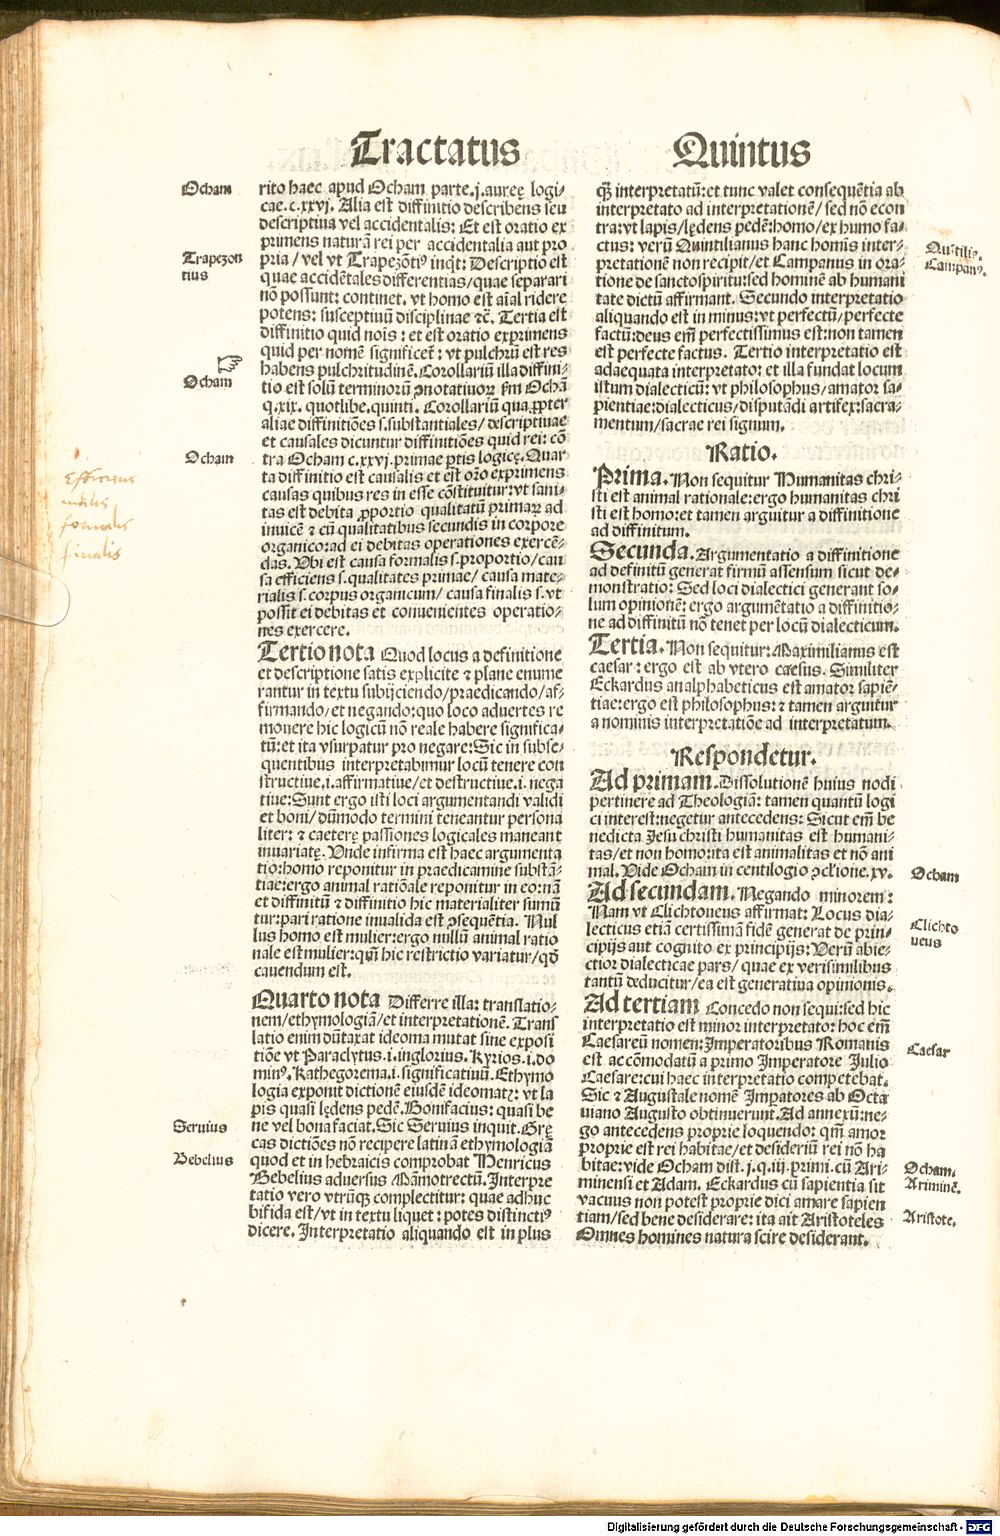 Tractatus Quintus
Ocham
Trapezon
tius
Ocham
Ocham
Efficiens
finalis
Seruius
Bebelius
rito haec apud Ocham parte.j.aureę logi-
cae.c.xxvj. Alia est diffinitio describens seu
descriptiua vel accidentalis: Et est oratio ex
primens naturā rei per accidentalia aut pro
pria/vel vt Trapezōtiꝰ inqt: Descriptio est
quae accidētales differentias/quae separari
nō possunt: continet. vt homo est aīal ridere
potens: susceptiuū disciplinae ⁊c̄. Tertia est
diffinitio quid nois: et est oratio exprimens
quid per nomē significet̄: vt pulchrū est res
☞ habens pulchritudinē. Corollariū illa diffini-
tio est solū terminorū ꝯnotatiuoꝝ fm Ochā
q.xix. quotlibe.quinti. Corollariū qua ꝓpter
aliae diffinitiōes s.substantiales/descriptiuae
et causales dicuntur diffinitiōes quid rei: cō
tra Ocham c.xxvj.primae ꝑtis logicę. Quar
ta diffinitio est causalis et est orō exprimens
causas quibus res in esse cōstituitur: vt sani-
tas est debita ꝓportio qualitatū primaꝝ ad
inuicē ⁊ cū qualitatibus secundis in corpore
organico: ad ei debitas operationes exercē-
das. Vbi est causa formalis s.proportio/cau
sa efficiens s.qualitates primae/causa mate-
rialis s.corpus organicum/causa finalis s.vt
possit ei debitas et conuenientes operatio-
nes exercere.
Tertio nota Quod locus a definitione
et descriptione satis explicite ⁊ plane enume
rantur in textu subijciendo/praedicando/af-
firmando/et negando: quo loco aduertes re
mouere hic logicū nō reale habere significa-
tū: et ita vsurpatur pro negare: Sic in subse-
quentibus interpretabimur locū tenere con
structiue.i.affirmatiue/et destructiue.i.nega
tiue: Sunt ergo isti loci argumentandi validi
et boni/dūmodo termini teneantur persona
liter: ⁊ caeterę passiones logicales maneant
inuariatę. Vnde infirma est haec argumenta
tio: homo reponitur in praedicamine substā-
tiae: ergo animal ratiōale reponitur in eo: nā
et diffinitū ⁊ diffinitio hic materialiter sumū
tur: pari ratione inualida est ꝯsequētia. Nul
lus homo est mulier: ergo nullū animal ratio
nale est mulier: qm̄ hic restrictio variatur/qđ
cauendum est.
Quarto nota Differre illa: translatio-
nem/ethymologiā/et interpretationē. Trans
latio enim dūtaxat ideoma mutat sine exposi
tiōe vt Paraclytus.i.inglorius. Kyrios.i.do
minꝰ. Kathegorema.i.significatiuū. Ethymo
logia exponit dictionē eiusdē ideomatꝫ: vt la
pis quasi lędens pedē. Bonifacius: quasi be
ne vel bona faciat. Sic Seruius inquit. Grę
cas dictiōes nō recipere latinā ethymologiā
quod et in hebraicis comprobat Henricus
Bebelius aduersus Māmotrectū. Interpre
tatio vero vtrūqꝫ complectitur: quae adhuc
bifida est/vt in textu liquet: potes distinctiꝰ
dicere. Interpretatio aliquando est in plus
qꝫ interpretatū: et tunc valet consequētia ab
interpretato ad interpretationē/sed nō econ
tra: vt lapis/lędens pedē: homo/ex humo fa-
ctus: verū Quintilianus hanc homis inter-
pretationē non recipit/et Campanus in ora-
tione de sanctospiritu: sed hominē ab humani
tate dictū affirmant. Secundo interpretatio
aliquando est in minus: vt perfectū/perfecte
factū: deus em̄ perfectissimus est: non tamen
est perfecte factus. Tertio interpretatio est
adaequata interpretato: et illa fundat locum
istum dialecticū: vt philosophus/amator sa-
pientiae: dialecticus/disputādi artifex: sacra-
mentum/sacrae rei signum.
Ratio.
Prima. Non sequitur Humanitas chri-
sti est animal rationale: ergo humanitas chri
sti est homo: et tamen arguitur a diffinitione
ad diffinitum.
Secunda. Argumentatio a diffinitione
ad definitū generat firmū assensum sicut de-
monstratio: Sed loci dialectici generant so-
lum opinionē: ergo argumētatio a diffinitio-
ne ad diffinitū nō tenet per locū dialecticum.
Tertia. Non sequitur: Maximilianus est
caesar: ergo est ab vtero caesus. Similiter
Eckardus analphabeticus est amator sapiē-
tiae: ergo est philosophus: ⁊ tamen arguitur
a nominis interpretatiōe ad interpretatum.
Respondetur.
Ad primam. Dissolutionē huius nodi
pertinere ad Theologiā: tamen quantū logi
ci interest: negetur antecedens: Sicut em̄ be
nedicta Jesu christi humanitas est humani-
tas/et non homo: ita est animalitas et nō ani
mal. Vide Ocham in centilogio ꝯclione.xv.
Ad secundam. Negando minorem:
Nam vt Clichtoueus affirmat: Locus dia-
lecticus etiā certissimā fidē generat de prin-
cipijs aut cognito ex principijs: Verū abie-
ctior dialecticae pars/quae ex verisimilibus
tantū deducitur/ea est generatiua opinionis.
Ad tertiam Concedo non sequi: sed hic
interpretatio est minor interpretato: hoc em̄
Caesareū nomen: Imperatoribus Romanis
est accōmodatū a primo Imperatore Julio
Caesare: cui haec interpretatio competebat.
Sic ⁊ Augustale nomē Imꝑatores ab Octa
uiano Augusto obtinuerunt. Ad annexū: ne-
go antecedens proprie loquendo: qm̄ amor
proprie est rei habitae/et desideriū rei nō ha
bitae: vide Ocham dist.j.q.iij.primi. cū Ari-
minensi et Adam. Eckardus cū sapientia sit
vacuus non potest proprie dici amare sapien
tiam/sed bene desiderare: ita ait Aristoteles
Omnes homines natura scire desiderant.
Campanꝰ.
Ocham
Clichto
ueus
Caesar
Ocham.
Ariminē.
Aristote.
Digitalisierung gefördert durch die Deutsche Forschungsgemeinschaft - DFG